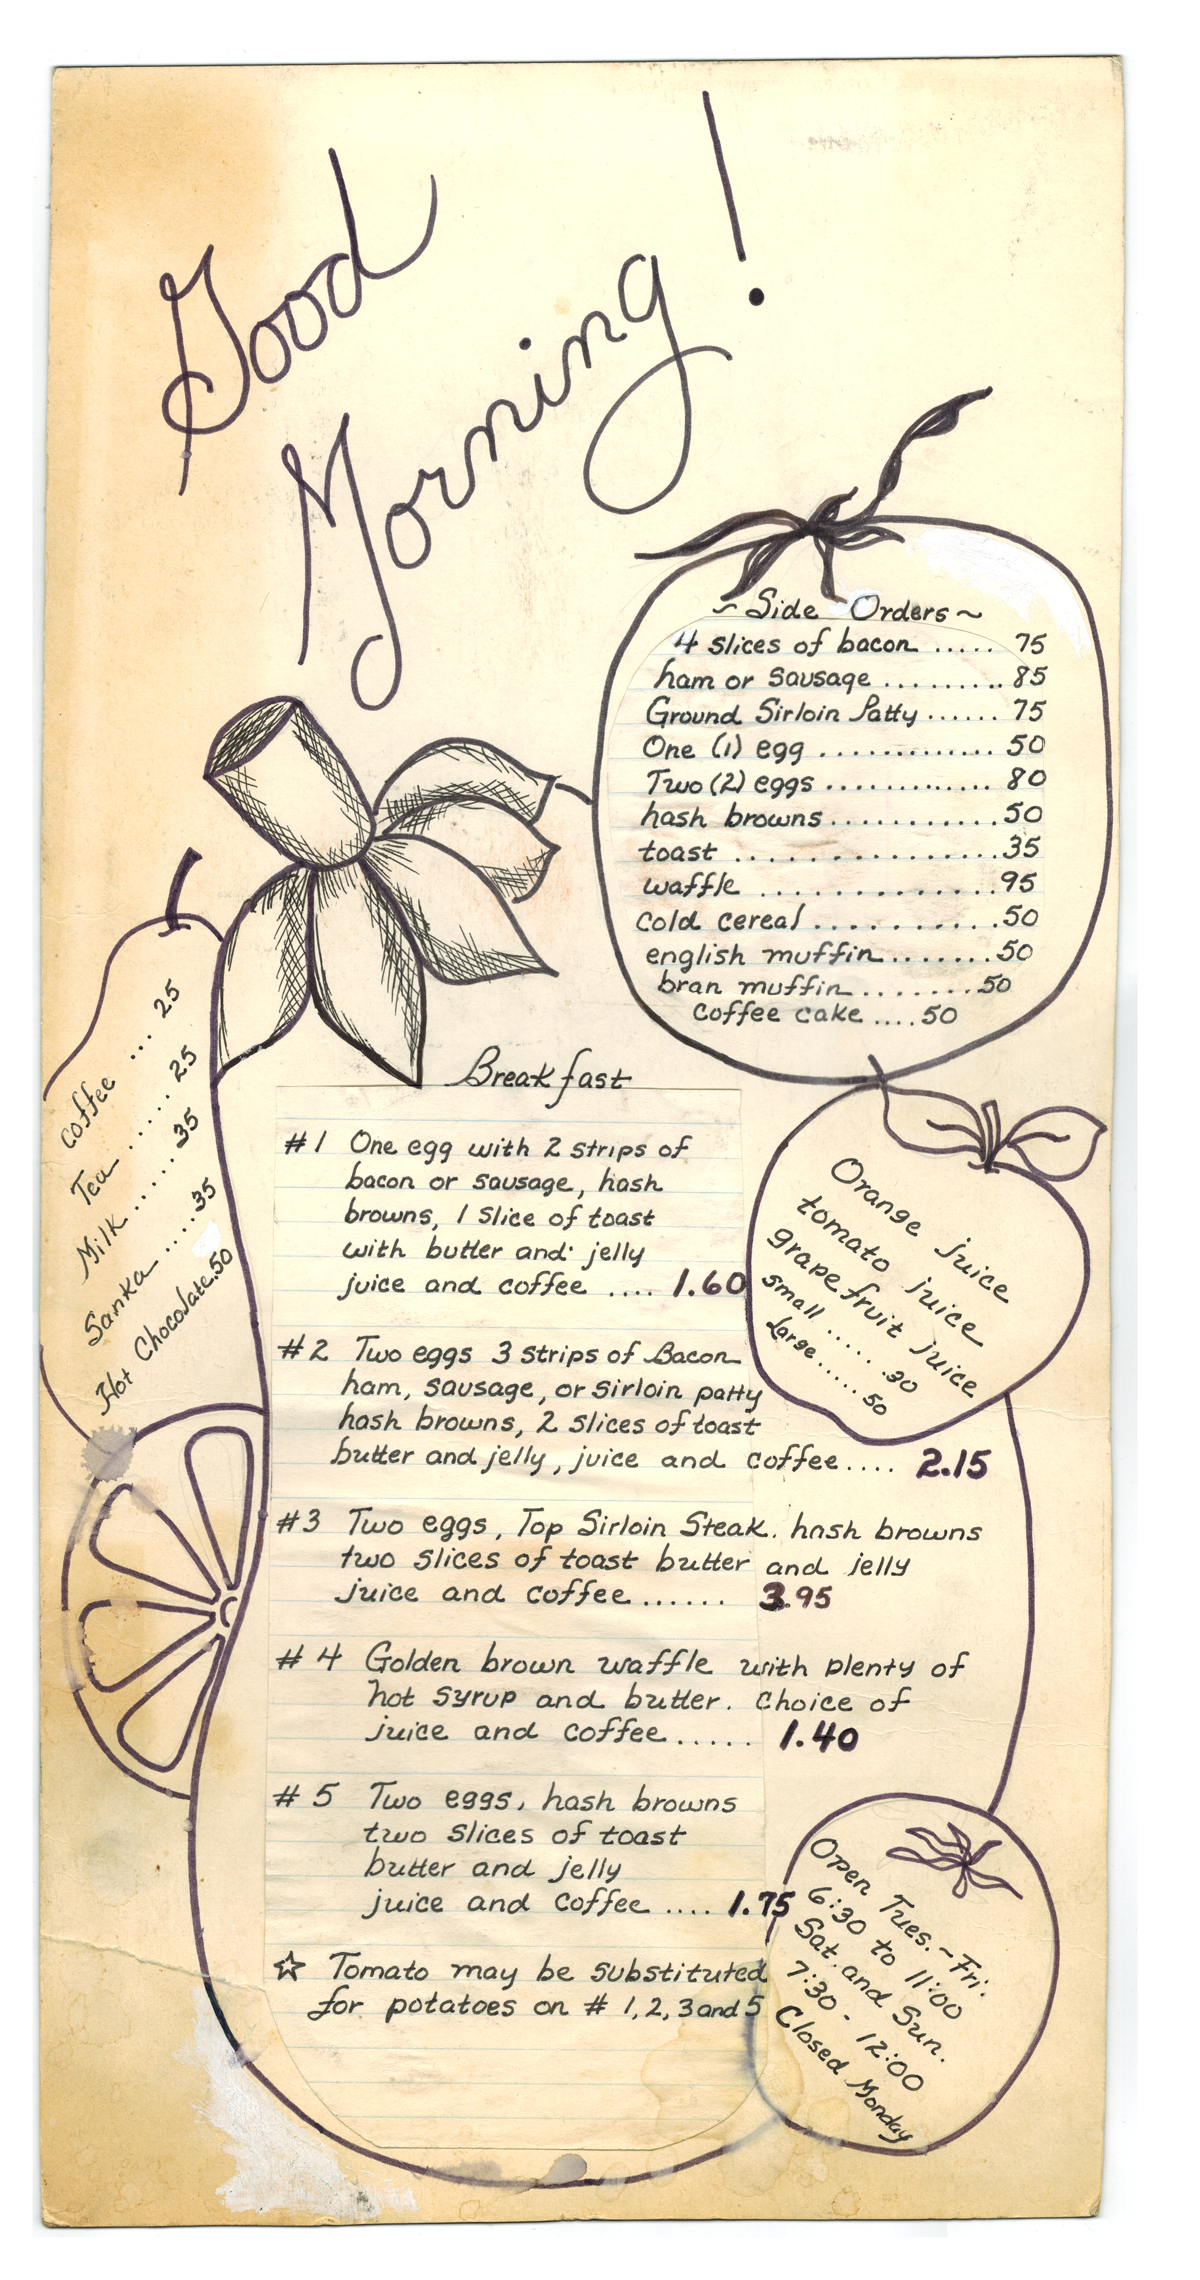 Good
Morning!
~ Side Orders ~
4 slices of bacon ..... 75
ham or sausage ......... 85
Ground Sirloin Patty ...... 75
One (1) egg ............. 50
Two (2) eggs ............ 80
hash browns ........... 50
toast ................ 35
waffle .............. 95
cold cereal .......... 50
english muffin ........ 50
bran muffin ........ 50
coffee cake .... 50
Coffee ... 25
Tea ...... 25
Milk ...... 35
Sanka .... 35
Hot Chocolate .50
Breakfast
#1 One egg with 2 strips of
bacon or sausage, hash
browns, 1 slice of toast
with butter and jelly
juice and coffee .... 1.60
#2 Two eggs 3 strips of Bacon
ham, sausage, or sirloin patty
hash browns, 2 slices of toast
butter and jelly, juice and coffee .... 2.15
#3 Two eggs, Top Sirloin Steak. hash browns
two slices of toast butter and jelly
juice and coffee ...... 3.95
#4 Golden brown waffle with plenty of
hot syrup and butter. Choice of
juice and coffee ..... 1.40
#5 Two eggs, hash browns
two slices of toast
butter and jelly
juice and coffee .... 1.75
☆ Tomato may be substituted
for potatoes on # 1, 2, 3 and 5
Orange juice
tomato juice
grapefruit juice
small ...... .30
Large ..... 50
Open Tues. ~ Fri.
6:30 to 11:00
Sat. and Sun.
7:30 - 12:00
Closed Monday